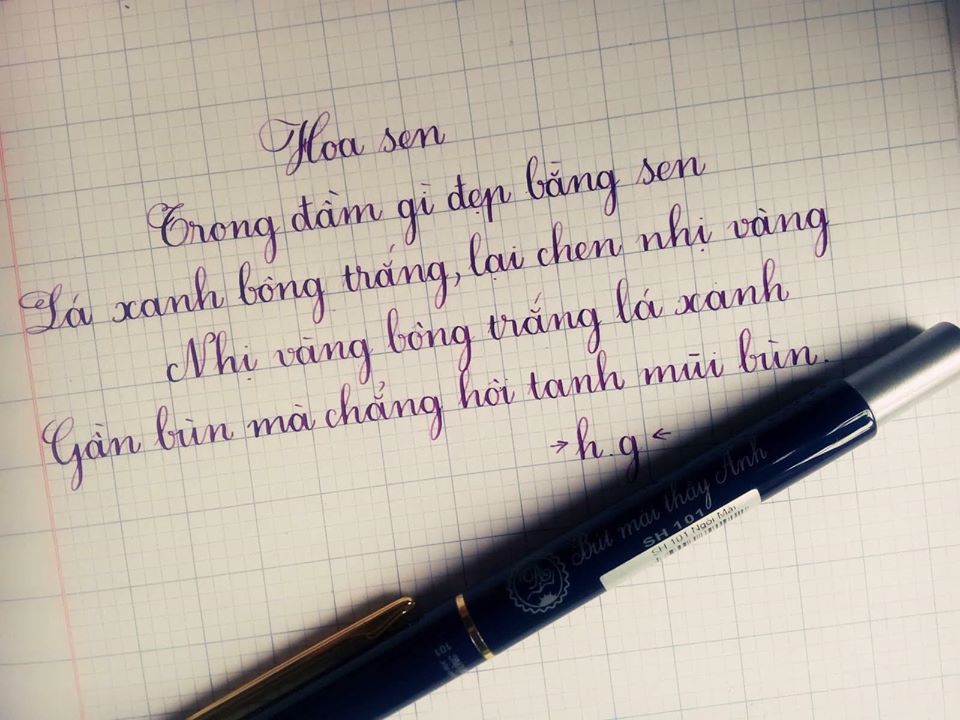 Hoa sen
Trong đầm gì đẹp bằng sen
Lá xanh bông trắng, lại chen nhị vàng
Nhị vàng bông trắng lá xanh
Gần bùn mà chẳng hôi tanh mùi bùn.
→h.g←
Bút mài thầy Ánh
SH 101
SH 101 Ngòi Mài
101